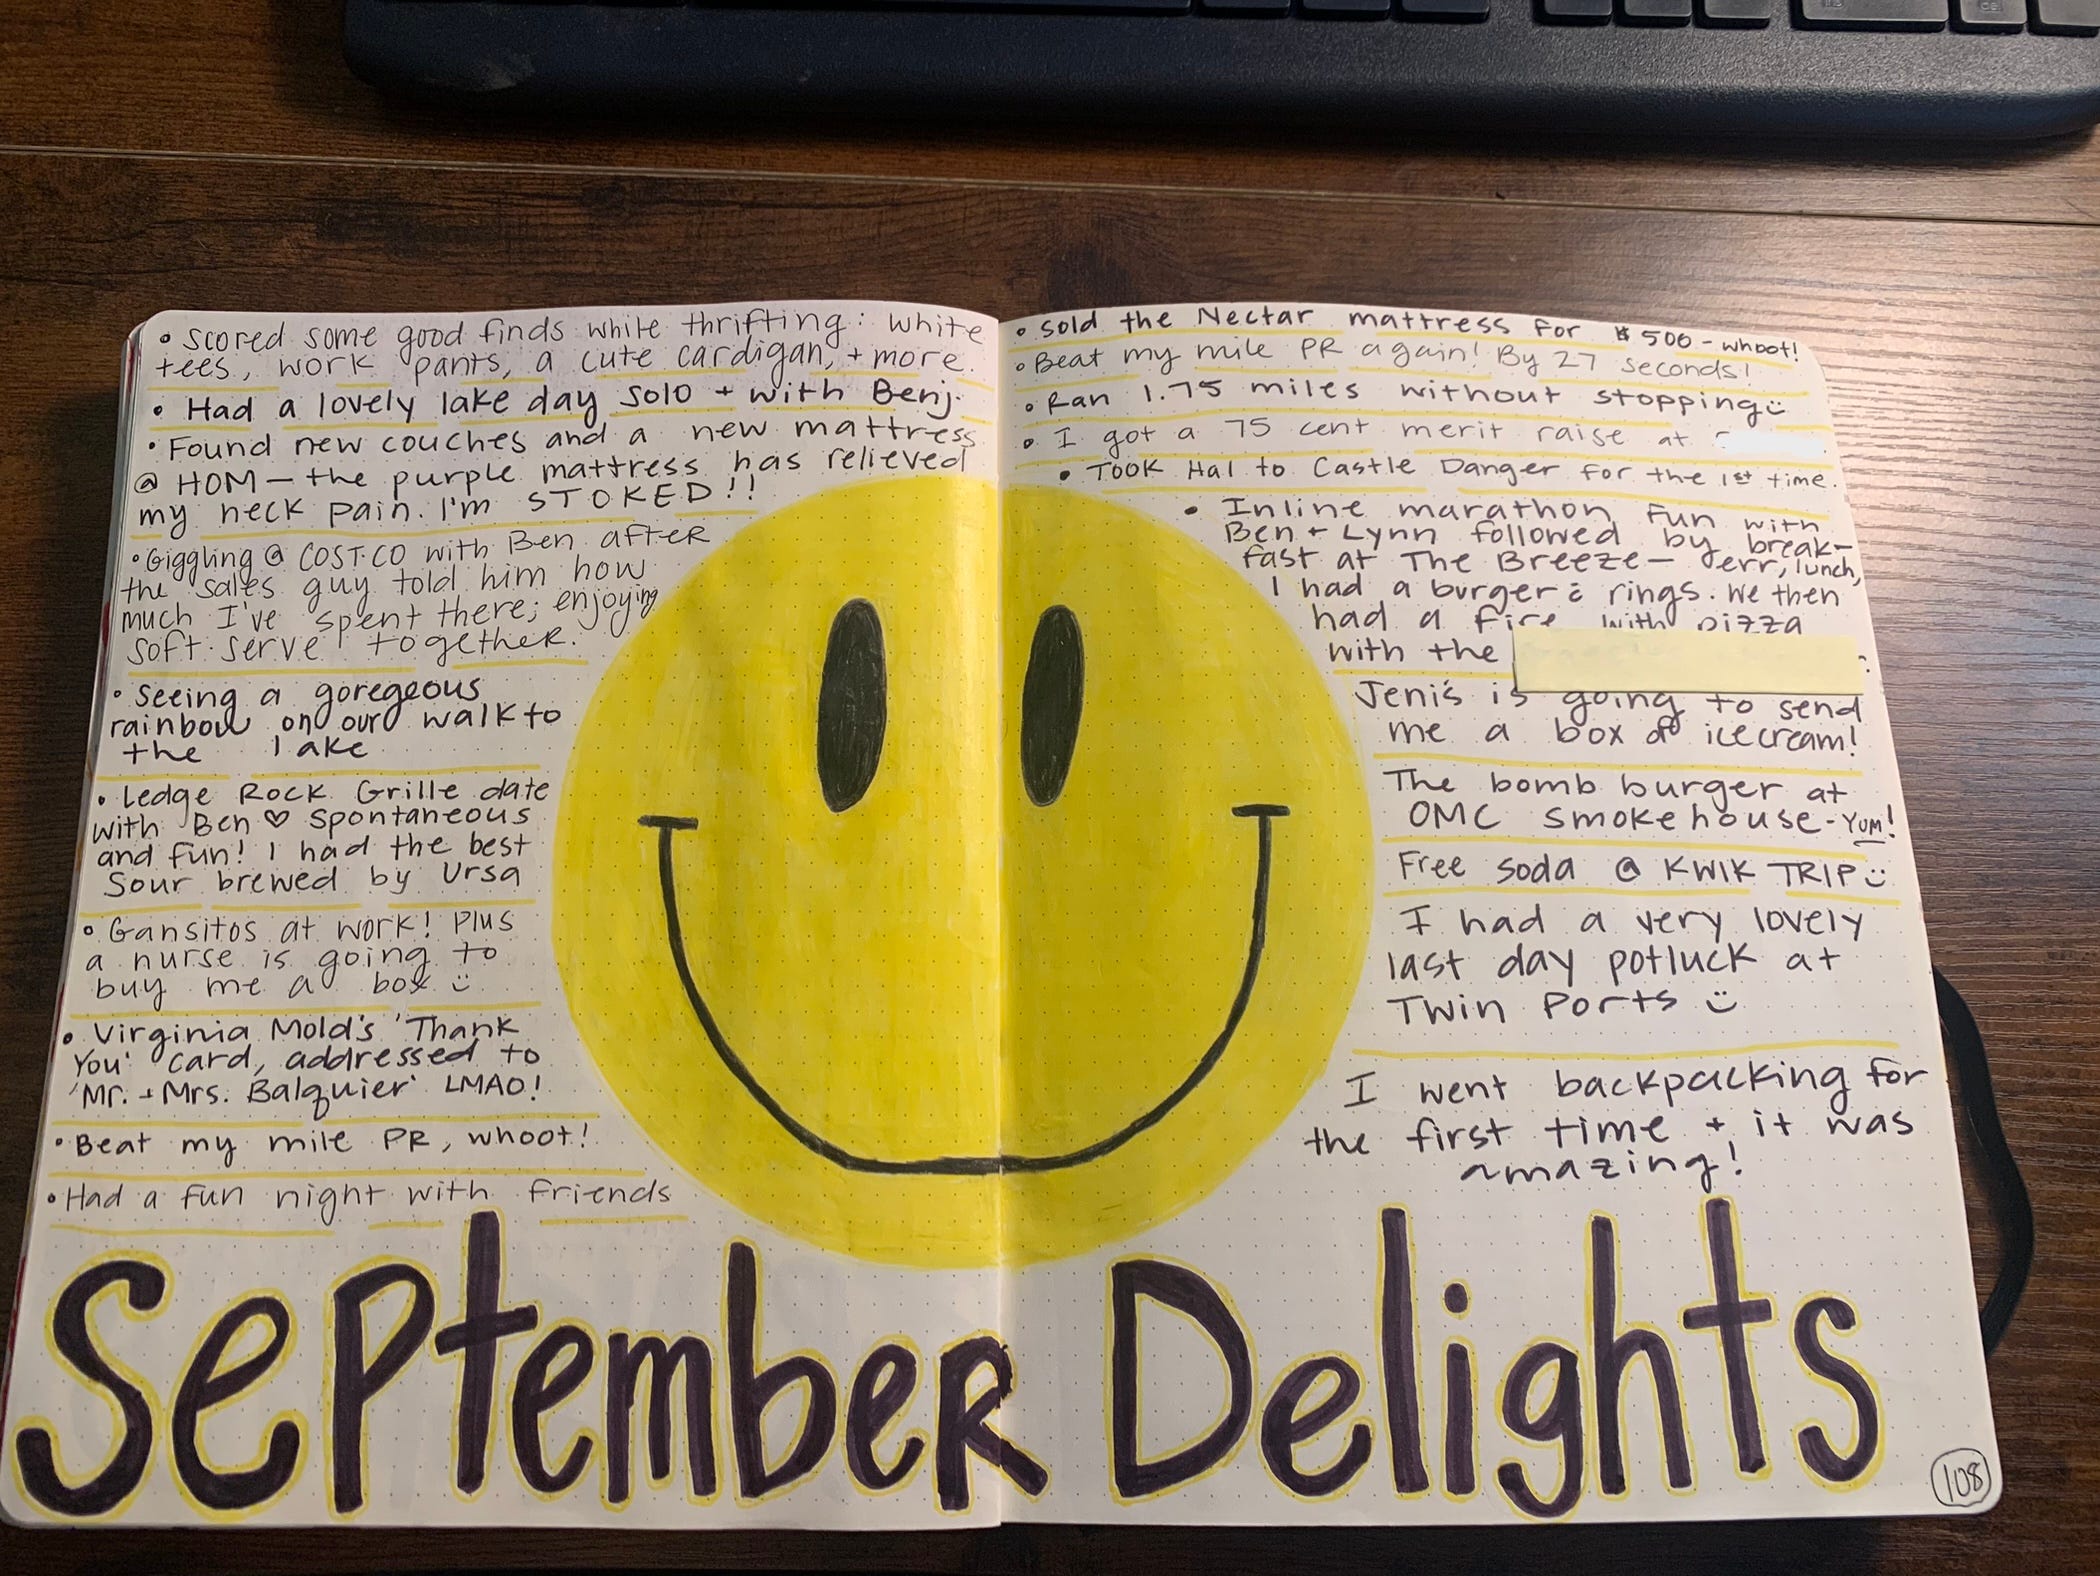 • Scored some good finds while thrifting: white
tees, work pants, a cute cardigan, + more.
• Had a lovely lake day solo + with Benj.
• Found new couches and a new mattress
@ HOM — the purple mattress has relieved
my neck pain. I'm STOKED!!
• Giggling @ COSTCO with Ben after
the sales guy told him how
much I've spent there; enjoying
soft serve together.
• Seeing a goregeous
rainbow on our walk to
the lake
• Ledge Rock Grille date
with Ben ♡ spontaneous
and fun! I had the best
Sour brewed by Ursa
• Gansitos at work! Plus
a nurse is going to
buy me a box ü
• Virginia Mold's 'Thank
You' card, addressed to
'Mr. + Mrs. Balquier' LMAO!
• Beat my mile PR, whoot!
• Had a fun night with friends
• Sold the Nectar mattress for $500 - whoot!
• Beat my mile PR again! By 27 seconds!
• Ran 1.75 miles without stopping ü
• I got a 75 cent merit raise at
• Took Hal to Castle Danger for the 1st time.
• Inline marathon fun with
Ben + Lynn followed by break-
fast at The Breeze — err, lunch,
I had a burger & rings. We then
had a fire with pizza
with the
Jeni's is going to send
me a box of icecream!
The bomb burger at
OMC Smokehouse - YUM!
Free soda @ KWIK TRIP ü
I had a very lovely
last day potluck at
Twin Ports ü
I went backpacking for
the first time + it was
amazing!
September Delights
108